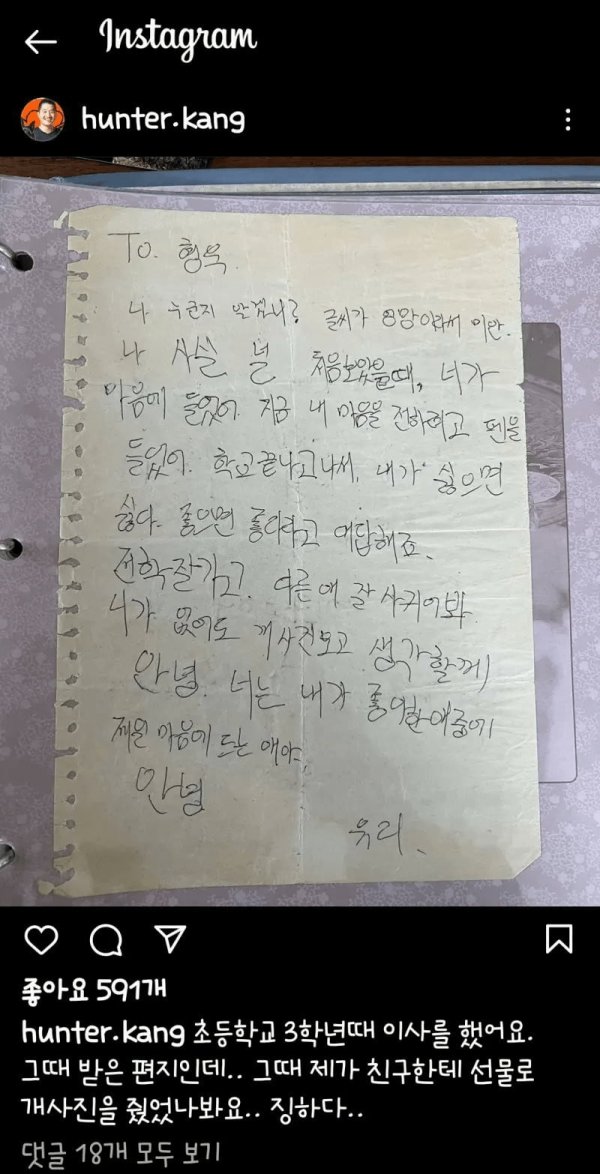 Instagram
hunter.kang
To. 형욱
나 누군지 알겠니? 글씨가 엉망이라서 미안.
나 사실 널 처음보았을때, 너가
마음에 들었어. 지금 내 마음을 전하려고 펜을
들었어. 학교끝나고나서, 내가 싫으면
싫다. 좋으면 좋다라고 대답해죠.
전학잘가고, 다른 애 잘 사귀어봐
니가 없어도 개사진보고 생각할께
안녕. 너는 내가 좋아한애중에
제일 마음에 드는 애야.
안녕
유리.
좋아요 591개
hunter.kang 초등학교 3학년때 이사를 했어요.
그때 받은 편지인데.. 그때 제가 친구한테 선물로
개사진을 줬었나봐요.. 징하다..
댓글 18개 모두 보기